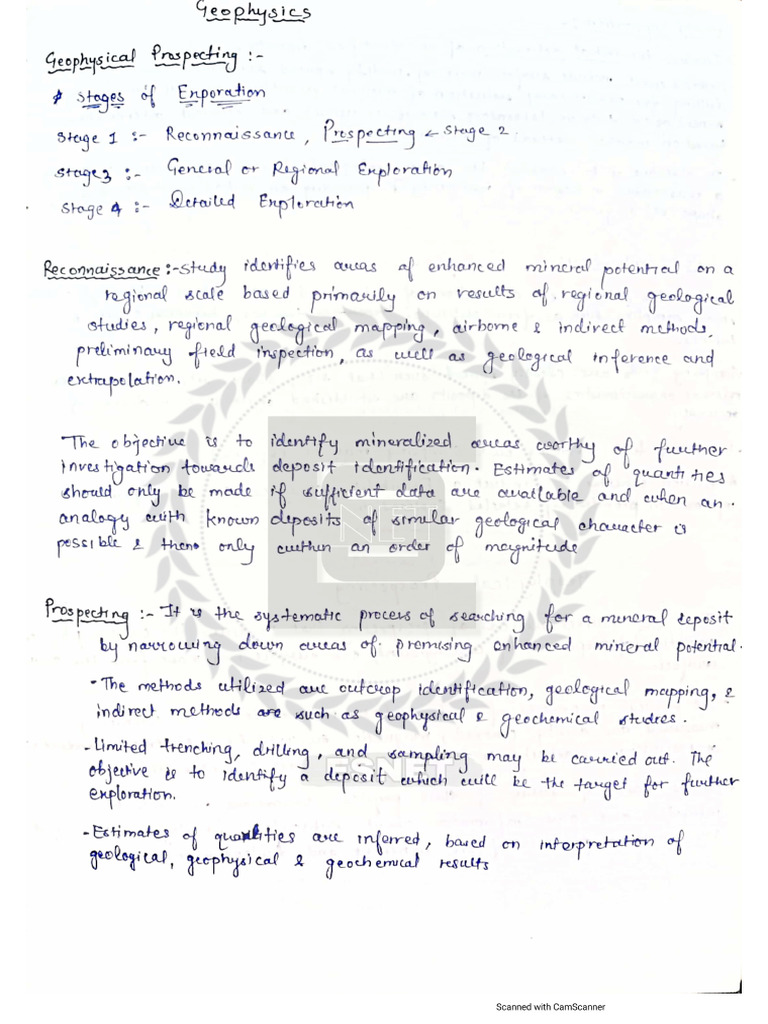 Geophysics
Geophysical Prospecting :-
* Stages of Enporation
Stage 1 :- Reconnaissance, Prospecting ← Stage 2.
Stage 3 :- General or Regional Exploration
Stage 4 :- Detailed Exploration
Reconnaissance :- Study identifies areas of enhanced mineral potential on a
regional scale based primarily on results of regional geological
studies, regional geological mapping, airborne & indirect methods,
preliminary field inspection, as well as geological inference and
extrapolation.
The objective is to identify mineralized areas worthy of further
investigation towards deposit identification. Estimates of quantities
should only be made if sufficient data are available and when an
analogy with known deposits of similar geological character is
possible & then only within an order of magnitude
Prospecting :- It is the systematic process of searching for a mineral deposit
by narrowing down areas of promising enhanced mineral potential.
- The methods utilized are outcrop identification, geological mapping, &
indirect methods are such as geophysical & geochemical studies.
- Limited trenching, drilling, and sampling may be carried out. The
objective is to identify a deposit which will be the target for further
exploration.
- Estimates of quantities are inferred, based on interpretation of
geological, geophysical & geochemical results
NET
ESNET
Scanned with CamScanner